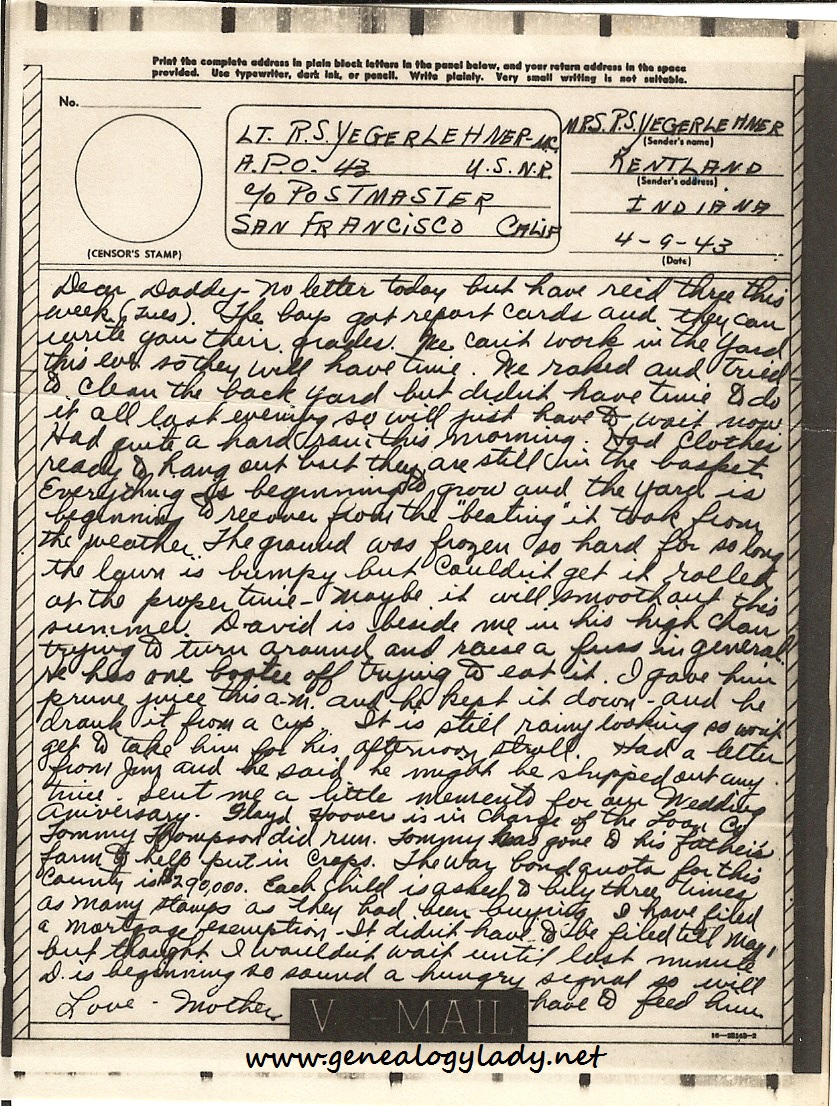 Print the complete address in plain block letters in the panel below, and your return address in the space
provided. Use typewriter, dark ink, or pencil. Write plainly. Very small writing is not suitable.
No.
(CENSOR'S STAMP)
LT. R.S. YEGERLEHNER-MC.
A.P.O. 43 U.S.N.R.
c/o POSTMASTER
SAN FRANCISCO CALIF
MRS. R.S. YEGERLEHNER
(Sender's name)
KENTLAND
(Sender's address)
INDIANA
4-9-43
(Date)
Dear Daddy - No letter today but have rec'd three this
week (Tues). The boys got report cards and they can
write you their grades. We can't work in the yard
this eve so they will have time. We raked and tried
to clean the back yard but didn't have time to do
it all last evening so will just have to wait now
Had quite a hard rain this morning. Had clothes
ready to hang out but they are still in the basket
Everything is beginning to grow and the yard is
beginning to recover from the "beating" it took from
the weather. The ground was frozen so hard for so long
the lawn is bumpy but couldn't get it rolled
at the proper time - maybe it will smooth out this
summer. David is beside me in his high chair
trying to turn around and raise a fuss in general.
He has one bootee off trying to eat it. I gave him
prune juice this a.m. and he kept it down - and he
drank it from a cup. It is still rainy looking so won't
get to take him for his afternoon stroll. Had a letter
from Jim and he said he might be shipped out any
time. Sent me a little memento for our Wedding
Aniversary. Floyd Hoover is in charge of the Loan Co
Tommy Thompson did run. Tommy has gone to his father's
farm to help put in crops. The war bond quota for this
County is $290,000. Each child is asked to buy three times
as many stamps as they had been buying. I have filed
a mortgage exemption - It didn't have to be filed till May 1
but thought I wouldn't wait until last minute
D. is beginning so sound a hungry signal so will
Love - Mother have to feed him
V-MAIL
16-28143-2
www.genealogylady.net